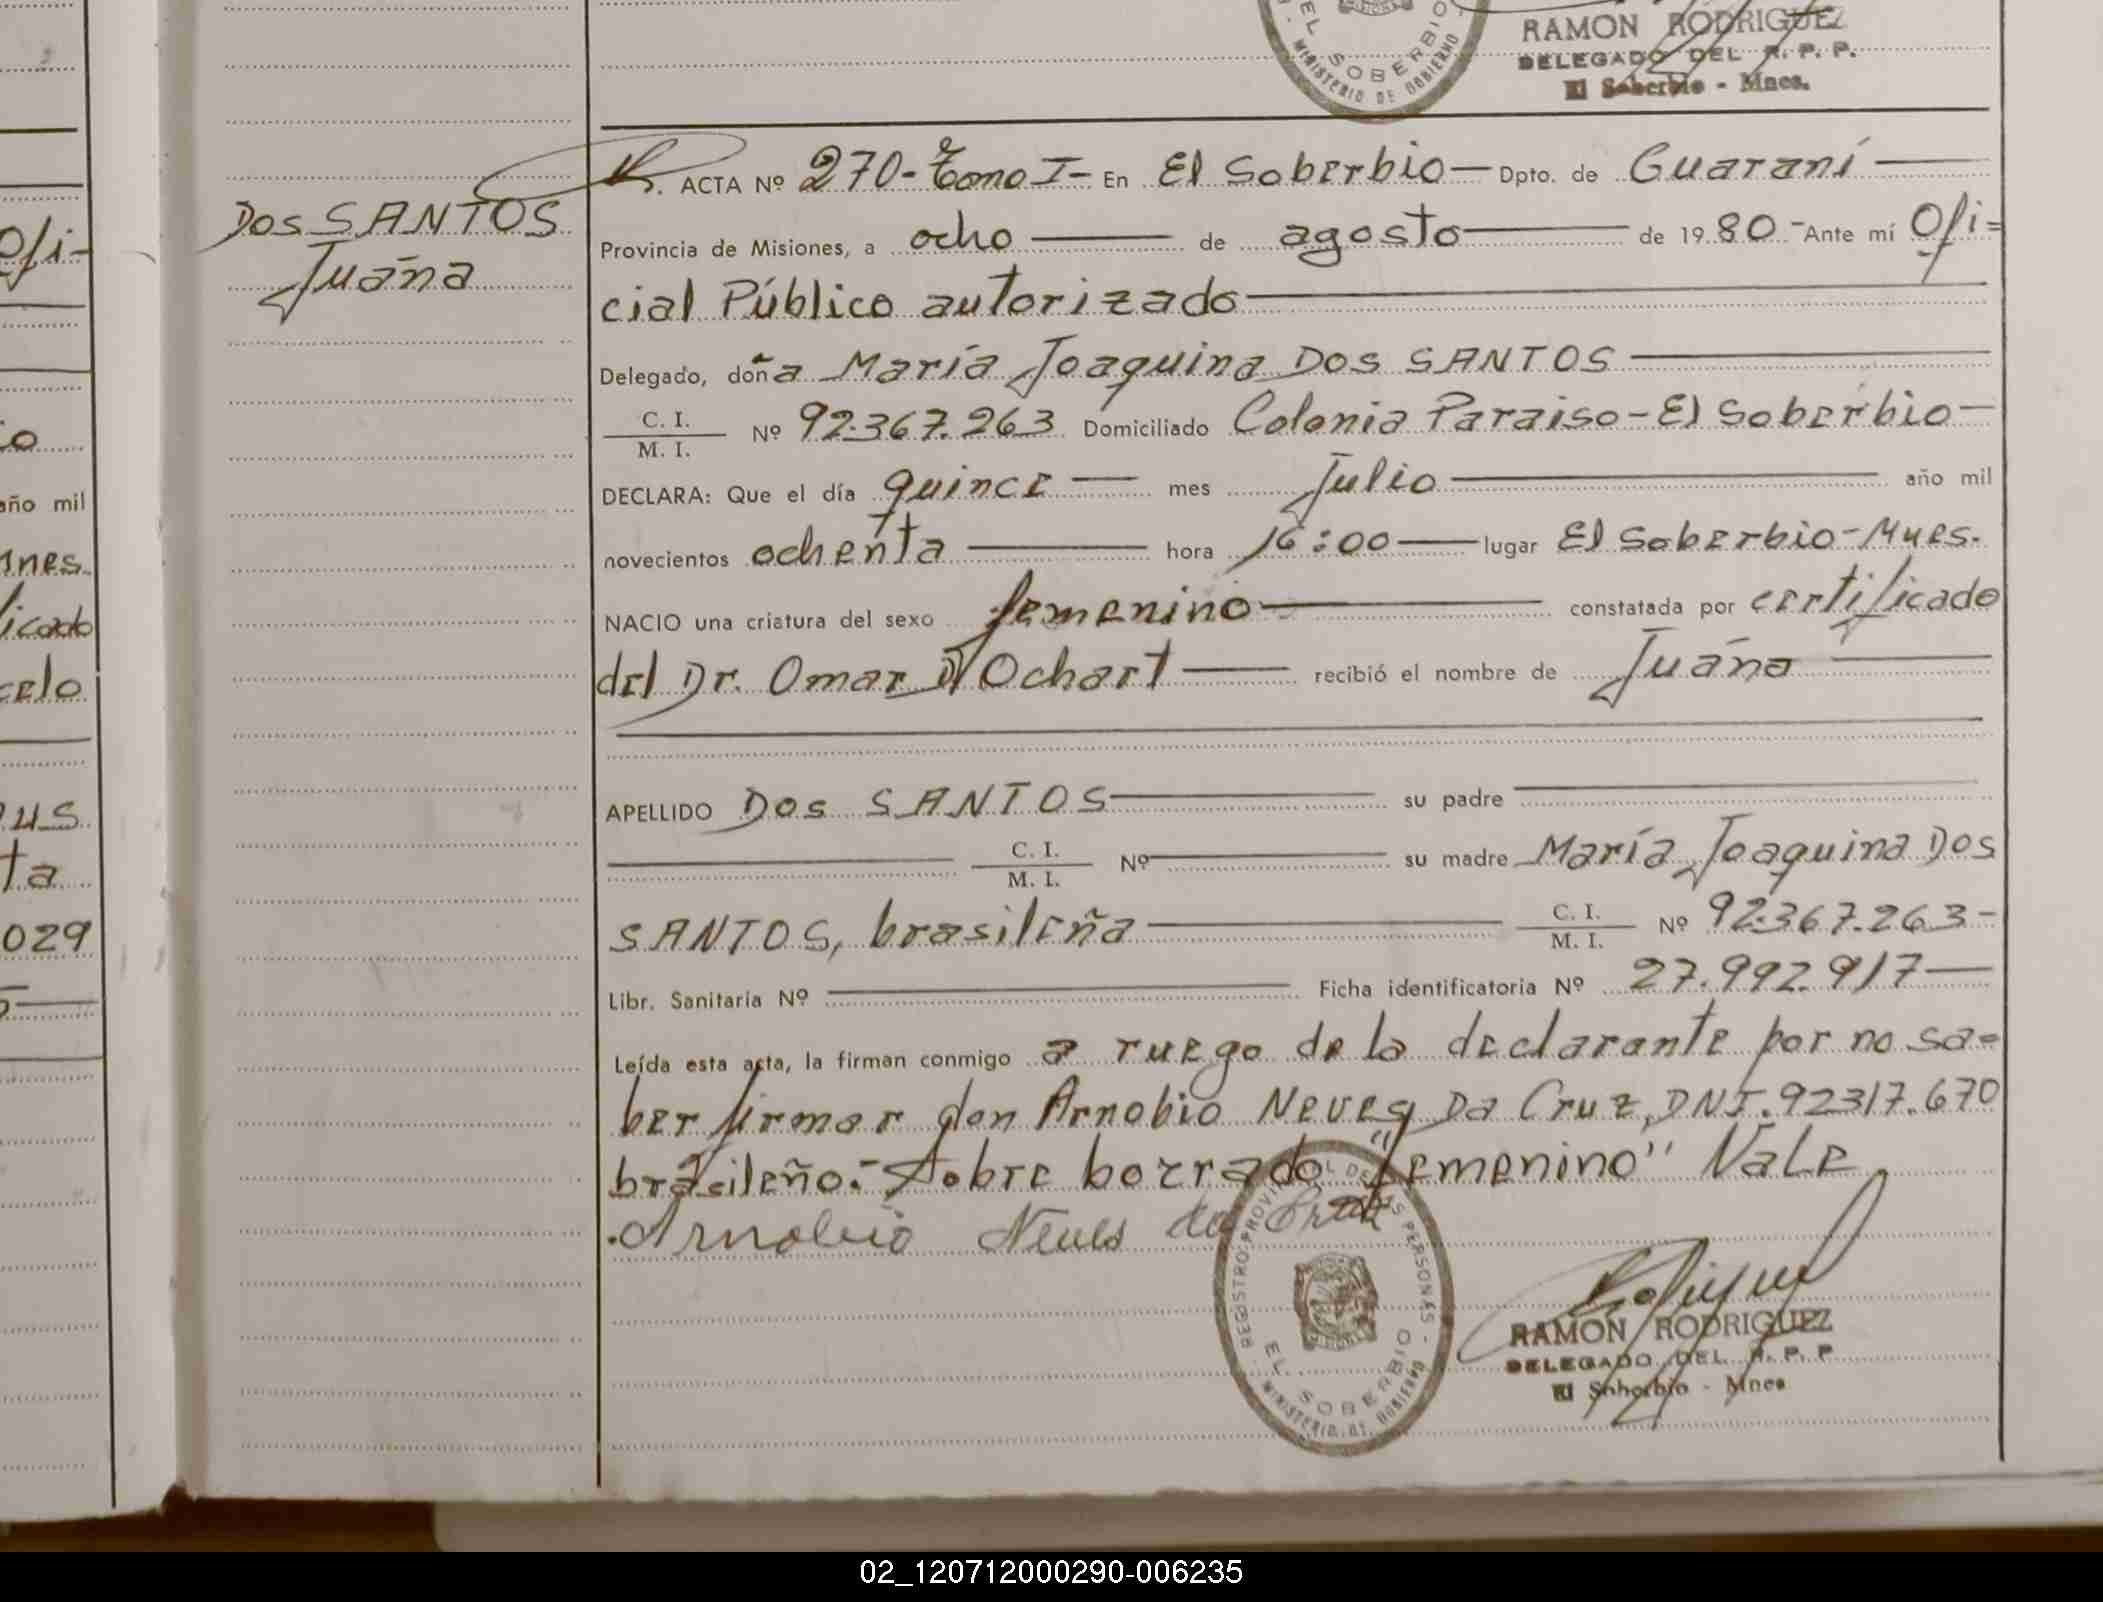 EL SOBERBIO
MINISTERIO DE GOBIERNO
RAMON RODRIGUEZ
DELEGADO DEL R. P. P.
El Soberbio - Mnes.
DOS SANTOS
Juana
ACTA Nº 270- Tomo I- En El Soberbio- Dpto. de Guaraní
Provincia de Misiones, a ocho de agosto de 1980-Ante mí Ofi=
cial Público autorizado
Delegado, doña María Joaquina DOS SANTOS
C. I.
M. I. Nº 92.367.263 Domiciliado Colonia Paraiso-El Soberbio-
DECLARA: Que el día quince mes Julio año mil
novecientos ochenta hora 16:00 lugar El Soberbio-Mnes.
NACIO una criatura del sexo femenino constatada por certificado
del Dr. Omar D'Ochart recibió el nombre de Juana
APELLIDO DOS SANTOS su padre
C. I.
M. I. Nº su madre María Joaquina DOS
SANTOS, brasileña C. I.
M. I. Nº 92.367.263-
Libr. Sanitaria Nº Ficha identificatoria Nº 27.992.917
Leída esta acta, la firman conmigo a ruego de la declarante por no sa=
ber firmar don Arnobio Neves Da Cruz, DNI.92317.670
brasileño.- Sobre borrado "femenino" Vale
Arnobio Neves da Cruz
REGISTRO PROVINCIAL DE LAS PERSONAS
EL SOBERBIO
MINISTERIO DE GOBIERNO
RAMON RODRIGUEZ
DELEGADO DEL R. P. P
El Soberbio - Mnes
ofi-
año mil
mnes.
icado
celo
us
ta
029
02_120712000290-006235